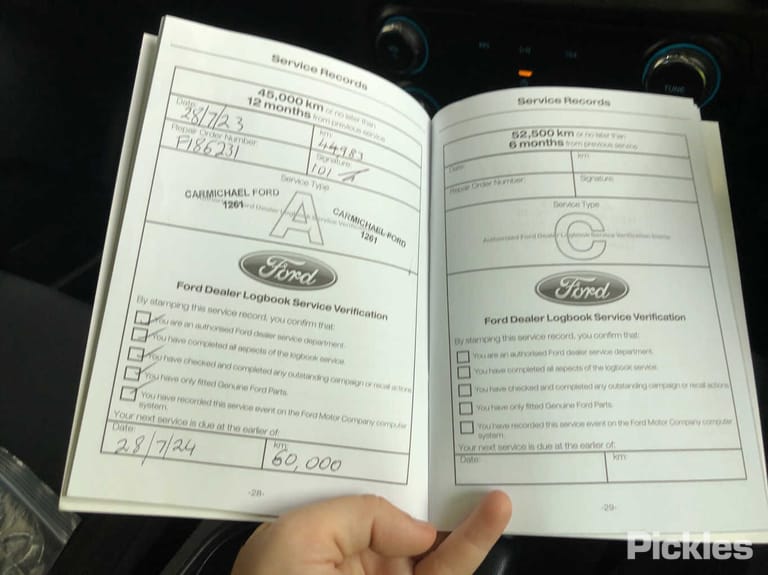 Service Records
45,000 km or no later than
12 months from previous service
Date: 28/7/23
km: 44983
Repair Order Number: F186231
Signature: 101
Service Type
CARMICHAEL FORD
1261
A
CARMICHAEL FORD
1261
Ford
Ford Dealer Logbook Service Verification
By stamping this service record, you confirm that:
You are an authorised Ford dealer service department.
You have completed all aspects of the logbook service.
You have checked and completed any outstanding campaign or recall actions
You have only fitted Genuine Ford Parts.
You have recorded this service event on the Ford Motor Company computer
system.
Your next service is due at the earlier of:
Date: 28/7/24
km: 60,000
-28-
Service Records
52,500 km or no later than
6 months from previous service
Date:
km:
Repair Order Number:
Signature:
Service Type
C
Authorised Ford Dealer Logbook Service Verification Stamp
Ford
Ford Dealer Logbook Service Verification
By stamping this service record, you confirm that:
You are an authorised Ford dealer service department.
You have completed all aspects of the logbook service.
You have checked and completed any outstanding campaign or recall actions
You have only fitted Genuine Ford Parts.
You have recorded this service event on the Ford Motor Company computer
system.
Your next service is due at the earlier of:
Date:
km:
-29-
TUNE
Pickles